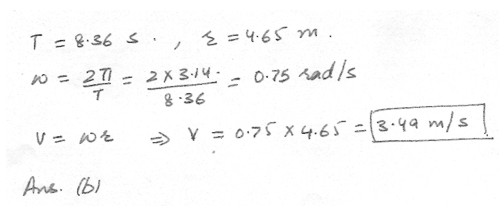 T = 8.36 s. , r = 4.65 m.
ω = 2π/T = 2 × 3.14./8.36 = 0.75 rad/s
V = ωr ⇒ V = 0.75 × 4.65 = 3.49 m/s
Ans. (b)